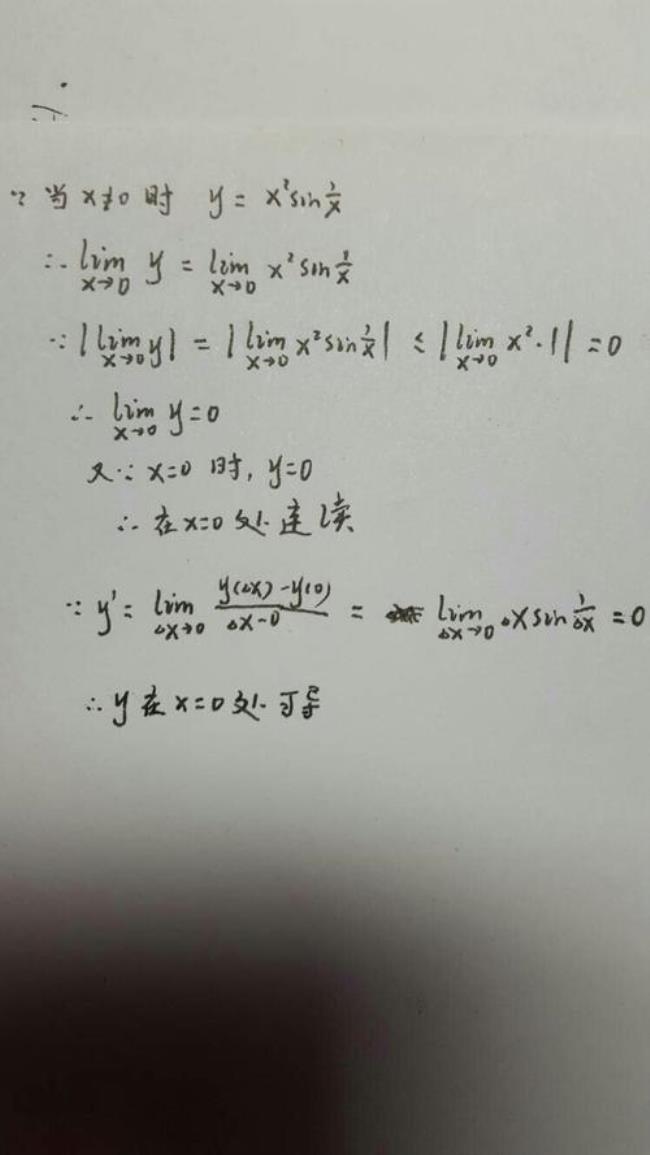 ∵ 当 x≠0 时 y = x² sin 1/x
∴ lim x→0 y = lim x→0 x² sin 1/x
∵ |lim x→0 y| = |lim x→0 x² sin 1/x| ≤ |lim x→0 x²·1| = 0
∴ lim x→0 y=0
又∵ x=0 时, y=0
∴ 在 x=0 处 连续
∵ y' = lim △x→0 y(△x)-y(0) / △x-0 = lim △x→0 △x sin 1/△x = 0
∴ y 在 x=0 处 可导